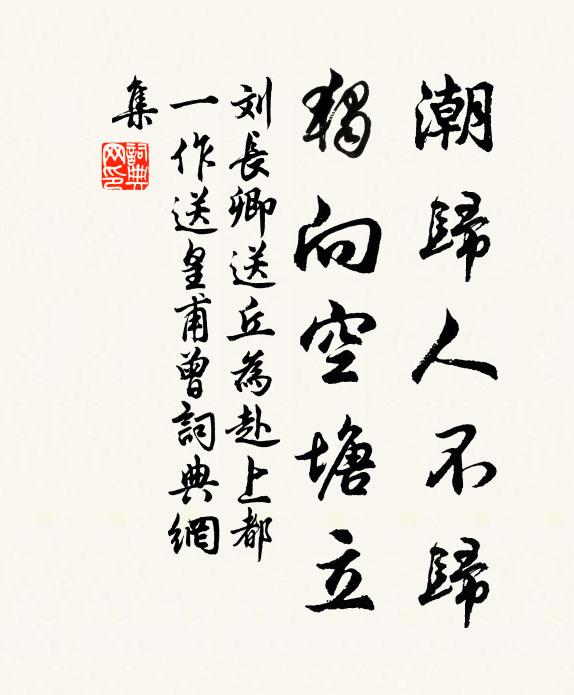 潮歸人不歸
獨向空塘立
刘長卿送丘為赴上都
一作送皇甫曾詞典網
集
詞典
网印